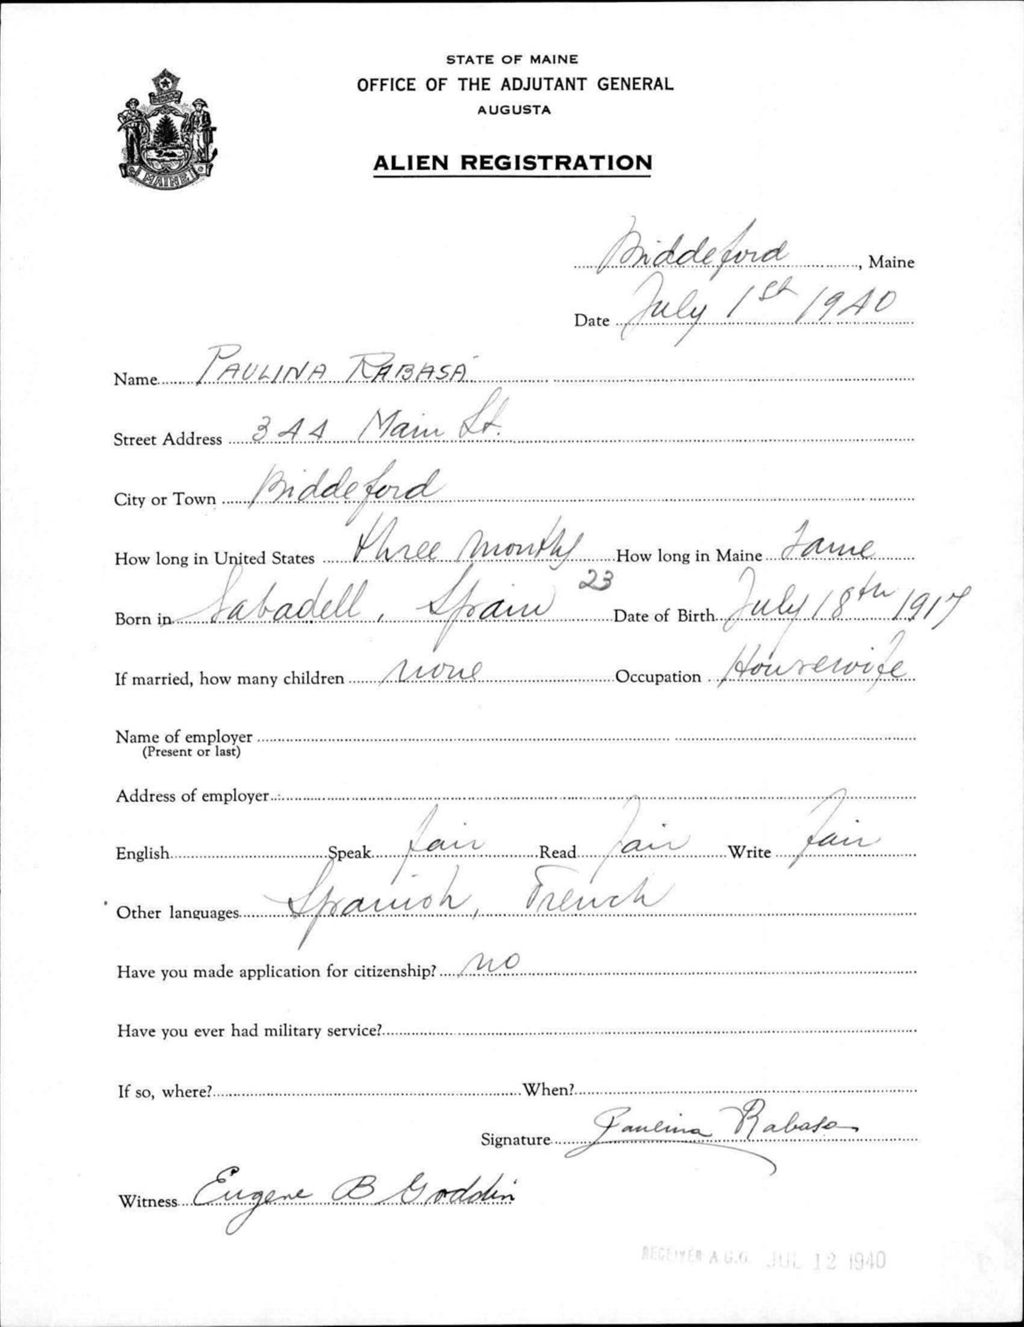 STATE OF MAINE
OFFICE OF THE ADJUTANT GENERAL
AUGUSTA
ALIEN REGISTRATION
MAINE
Biddeford, Maine
Date July 1st 1940
Name PAULINA RABASÁ
Street Address 344 Main St.
City or Town Biddeford
How long in United States three months How long in Maine Same
Born in Sabadell, Spain 23 Date of Birth July 18th 1917
If married, how many children none Occupation Housewife
Name of employer
(Present or last)
Address of employer
English Speak fair Read fair Write fair
Other languages Spanish, French
Have you made application for citizenship? no
Have you ever had military service?
If so, where? When?
Signature Paulina Rabasa
Witness Eugene B Goddin
RECEIVED A.G.O. JUL 12 1940